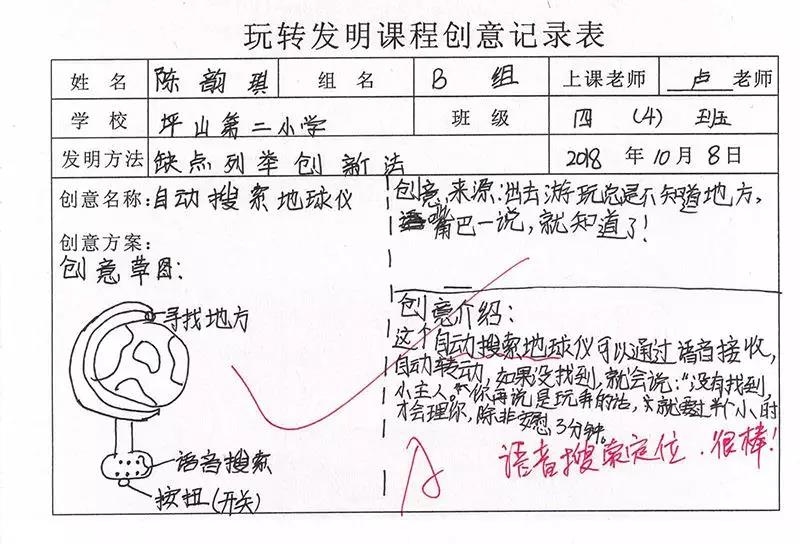 玩转发明课程创意记录表
姓 名 陈韵琪 组 名 B 组 上课老师 卢 老师
学 校 坪山第二小学 班 级 四 (4) 班
发明方法 缺点列举创新法 2018 年 10 月 8 日
创意名称:自动搜索地球仪
创意方案:
创意草图:
寻找地方
语音搜索
按钮(开关)
创意来源:出去游玩总是不知道地方,
嘴巴一说,就知道了!
创意介绍:
这个自动搜索地球仪可以通过语音接收,
自动转动,如果没找到,就会说:“没有找到,
小主人。”你再说是玩弄的话,就要过半个小时
才会理你,除非安慰3分钟。
语音搜索定位.很棒!
A